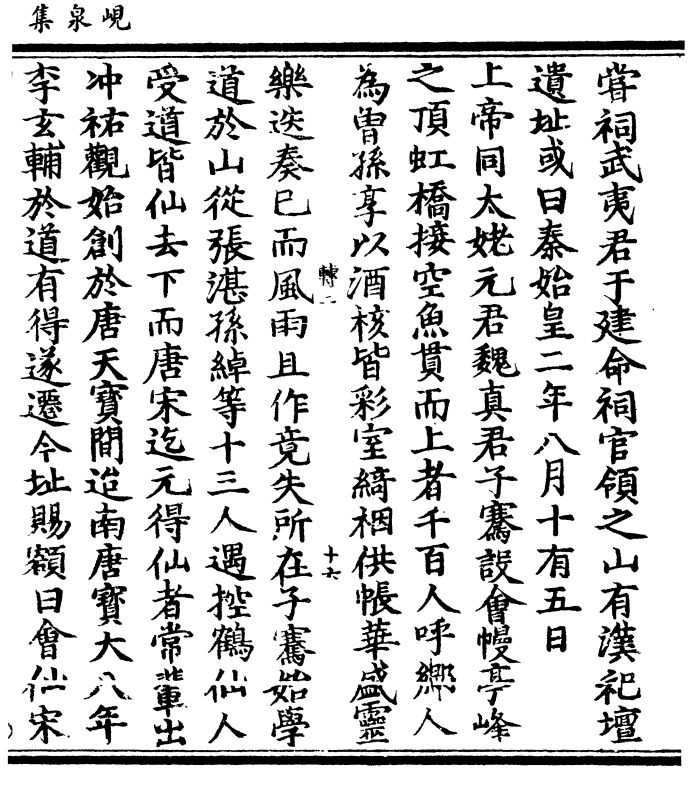 峴泉集
嘗祠武夷君于建命祠官領之山有漢祀壇
遺址或曰秦始皇二年八月十有五日
上帝同太姥元君魏真君子騫設會幔亭峰
之頂虹橋接空魚貫而上者千百人呼鄉人
為曾孫享以酒核皆彩室綺裀供帳華盛靈
轉二
十六
樂迭奏已而風雨且作竟失所在子騫始學
道於山從張湛孫綽等十三人遇控鶴仙人
受道皆仙去下而唐宋迄元得仙者常輩出
冲祐觀始創於唐天寶間迨南唐寶大八年
李玄輔於道有得遂遷今址賜額曰會仙宋